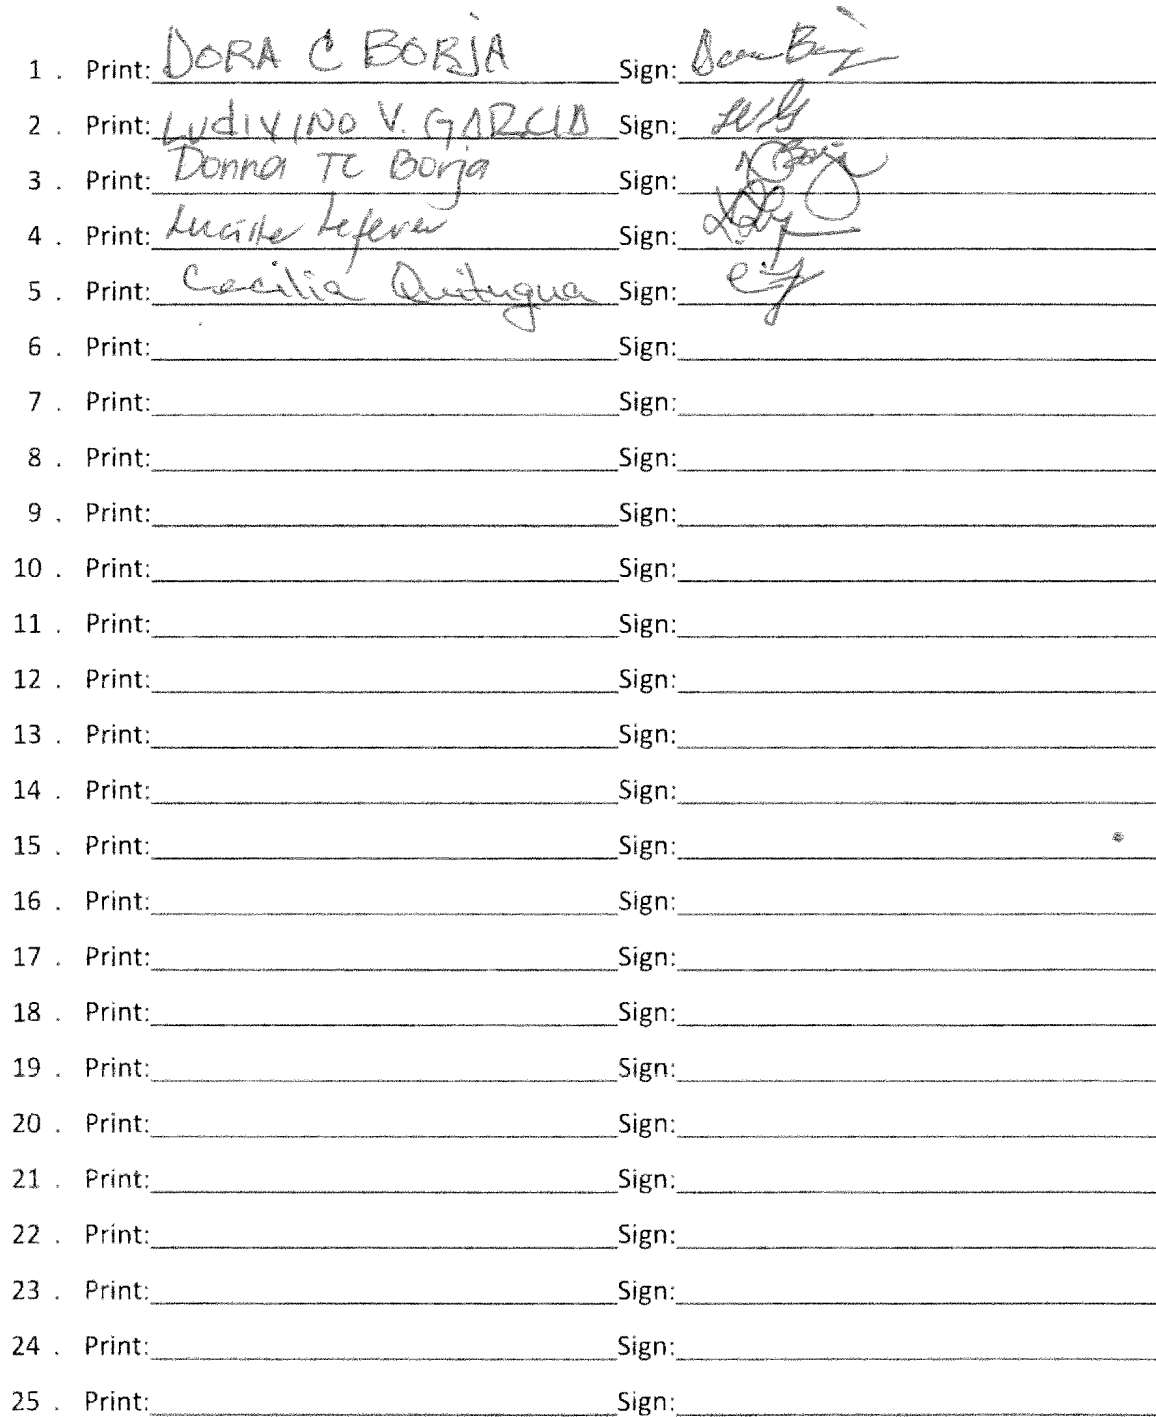 1 . Print: DORA C BORJA Sign: Dora Borja
2 . Print: LUdiVINO V. GARCIA Sign:
3 . Print: Donna TC Borja Sign: DBorja
4 . Print: Lucille Lefever Sign:
5 . Print: Cecilia Quitugua Sign:
6 . Print: Sign:
7 . Print: Sign:
8 . Print: Sign:
9 . Print: Sign:
10 . Print: Sign:
11 . Print: Sign:
12 . Print: Sign:
13 . Print: Sign:
14 . Print: Sign:
15 . Print: Sign:
16 . Print: Sign:
17 . Print: Sign:
18 . Print: Sign:
19 . Print: Sign:
20 . Print: Sign:
21 . Print: Sign:
22 . Print: Sign:
23 . Print: Sign:
24 . Print: Sign:
25 . Print: Sign: